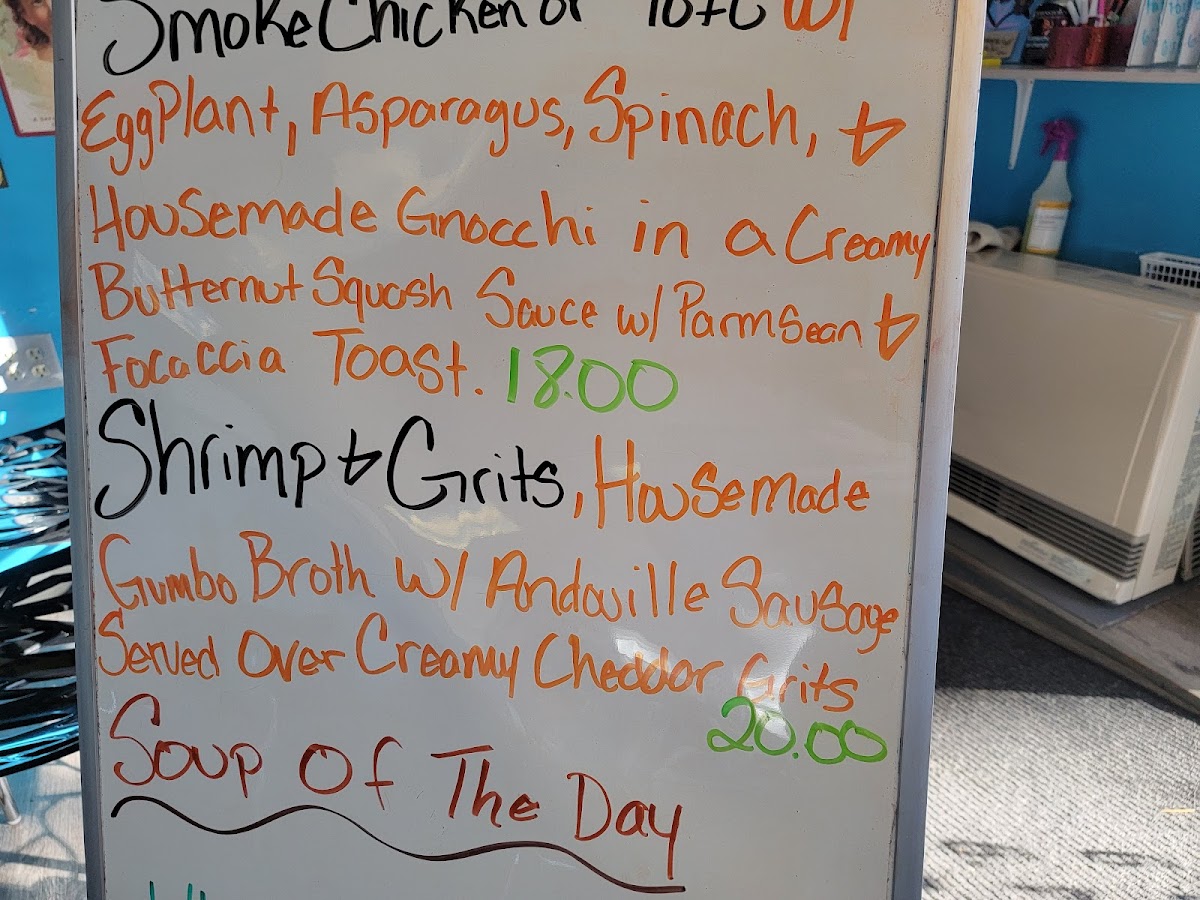 Smoke Chicken or Tofu w/
EggPlant, Asparagus, Spinach, &
Housemade Gnocchi in a Creamy
Butternut Squash Sauce w/ Parmsean &
Focaccia Toast. 18.00
Shrimp & Grits, Housemade
Gumbo Broth w/ Andouille Sausage
Served Over Creamy Cheddar Grits
20.00
Soup Of The Day